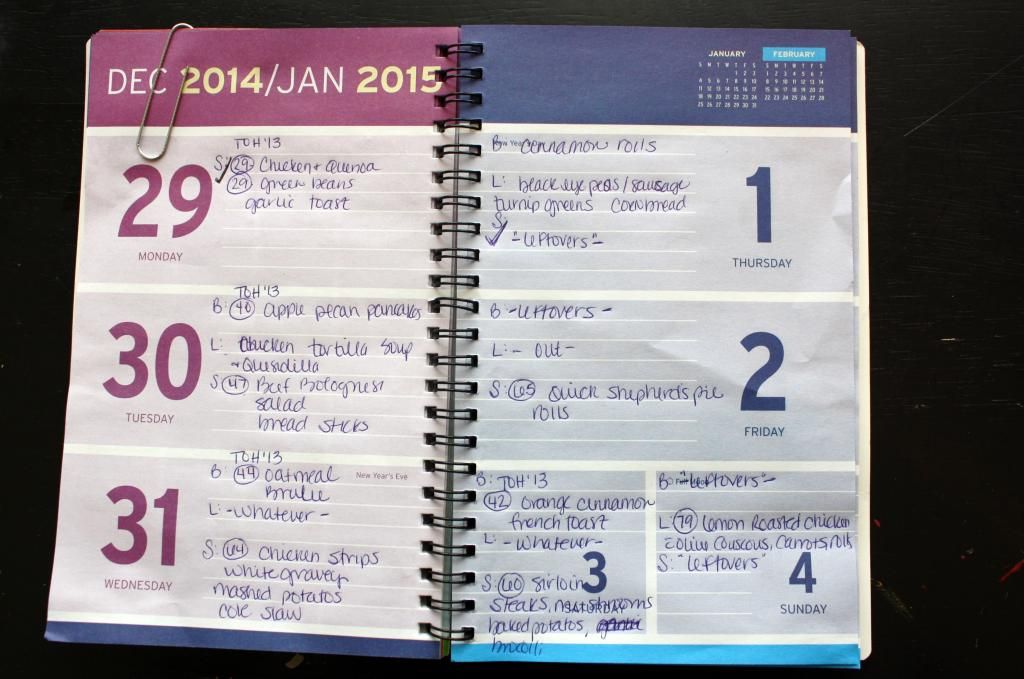 DEC 2014/JAN 2015
TOH '13
S: 29 Chicken + Quinoa
29 green beans
garlic toast
29
MONDAY
TOH '13
B: 40 apple pecan pancakes
L: chicken tortilla soup
+ Quesidilla
S: 47 Beef Bolognese
salad
bread sticks
30
TUESDAY
TOH '13
B: 44 oatmeal
Brulee
New Year's Eve
L: -Whatever-
S: 64 Chicken strips
white gravey
mashed potatos
cole slaw
31
WEDNESDAY
JANUARY
FEBRUARY
B: Cinnamon rolls
L: black eye peas/sausage
turnip greens cornbread
S:
✓ -Leftovers-
1
THURSDAY
B -Leftovers-
L: -out-
S: 65 Quick shepherd's pie
rolls
2
FRIDAY
B: TOH '13
42 orange cinnamon
french toast
L: -Whatever-
S: 60 Sirloin
steaks, mushrooms
baked potatos,
brocolli
3
SATURDAY
B: "Leftovers"
L: 79 Lemon Roasted Chicken
Olive Couscous, Carrots, rolls
S: "Leftovers"
4
SUNDAY